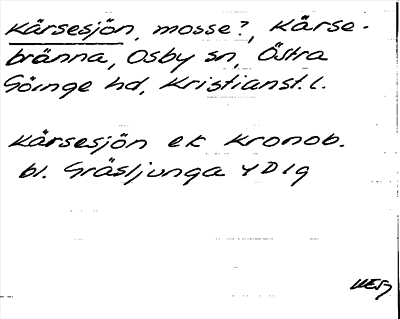 Kärsesjön, mosse?, Kärse-
bränna, Osby sn, Östra
Göinge hd, Kristianst. l.
Kärsesjön ek Kronob.
bl. Gräsljunga 4D1g